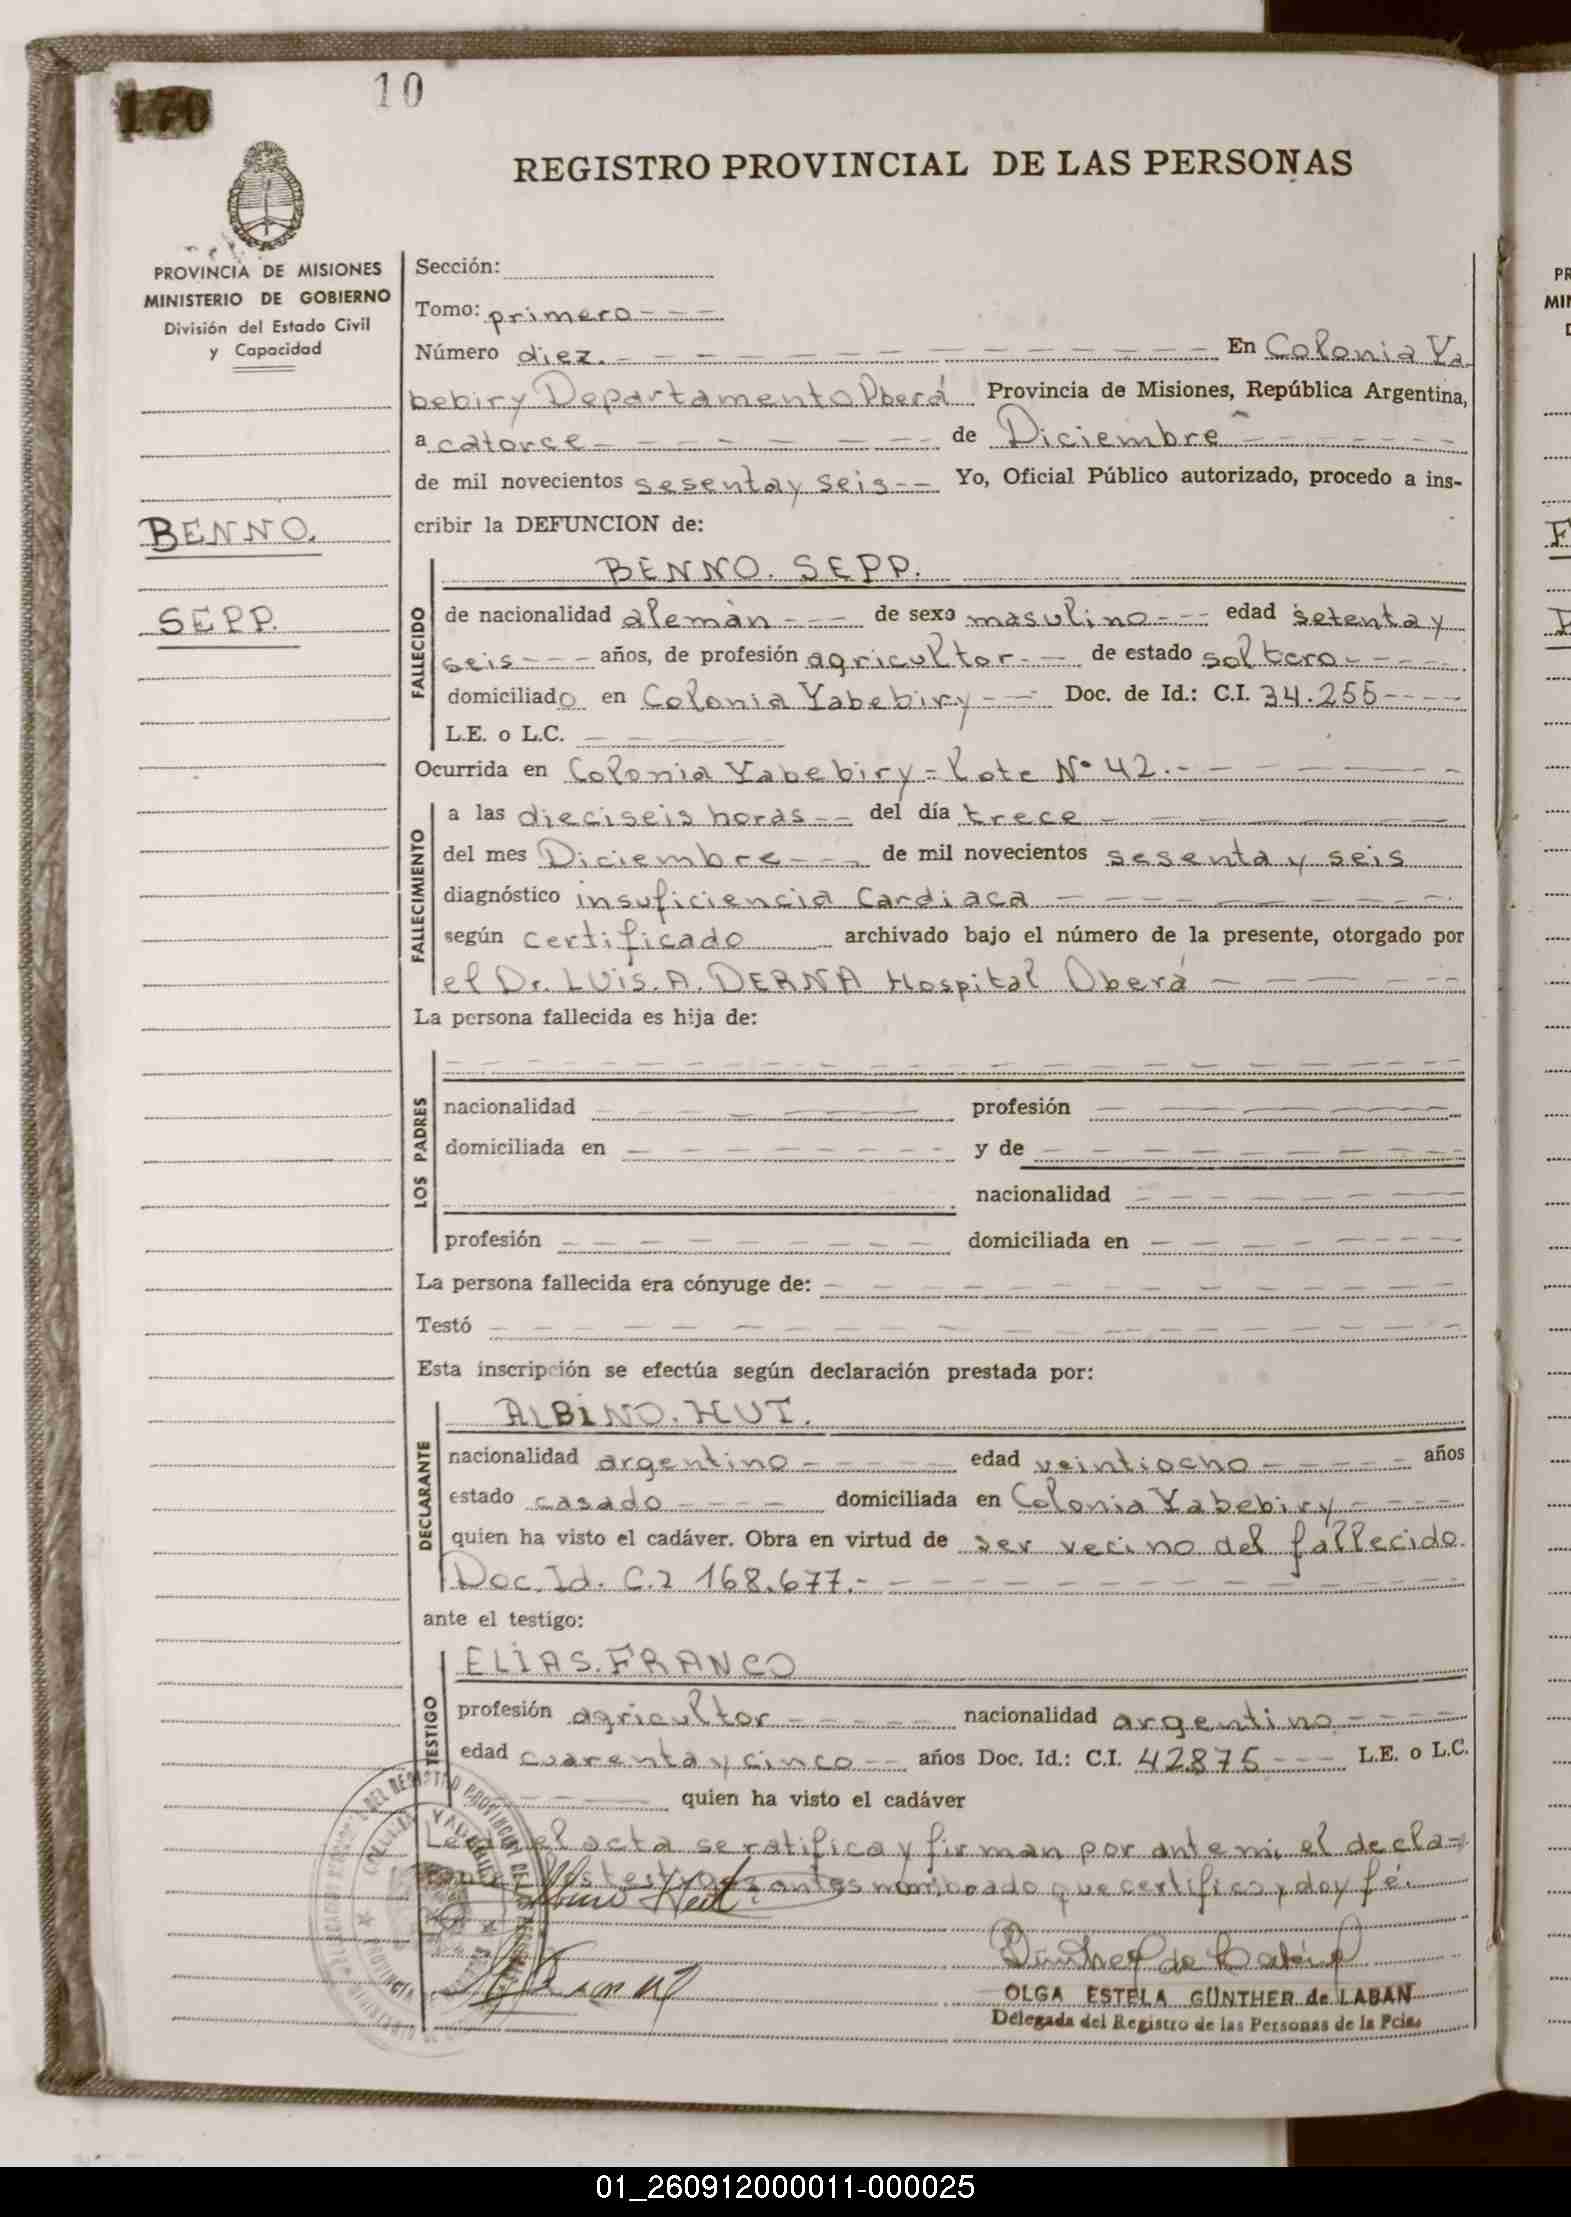 170
10
REGISTRO PROVINCIAL DE LAS PERSONAS
PROVINCIA DE MISIONES
MINISTERIO DE GOBIERNO
División del Estado Civil
y Capacidad
BENNO.
SEPP.
Sección:
Tomo: primero - - -
Número diez. - - - En Colonia Ya
bebiry Departamento Oberá Provincia de Misiones, República Argentina,
a catorse - - - de Diciembre - - -
de mil novecientos sesenta y seis - - Yo, Oficial Público autorizado, procedo a ins-
cribir la DEFUNCION de:
FALLECIDO
BENNO. SEPP.
de nacionalidad alemàn - - - de sexo masulino - - - edad setenta y
seis - - - años, de profesión agricultor - - de estado soltero - - -
domiciliado en Colonia Yabebiry - - - Doc. de Id.: C.I. 34.255 - - - -
L.E. o L.C. - - - -
Ocurrida en Colonia Yabebiry = lote Nº 42. - - -
FALLECIMIENTO
a las dieciseis horas - - del día trece - - -
del mes Diciembre - - - de mil novecientos sesenta y seis
diagnóstico insuficiencia Cardiaca - - -
según certificado archivado bajo el número de la presente, otorgado por
el Dr. LUIS. A. DERNA Hospital Oberá - - -
La persona fallecida es hija de:
LOS PADRES
nacionalidad - - - profesión - - -
domiciliada en - - - y de - - -
nacionalidad - - -
profesión - - - domiciliada en - - -
La persona fallecida era cónyuge de: - - -
Testó - - -
Esta inscripción se efectúa según declaración prestada por:
DECLARANTE
ALBINO. HUT.
nacionalidad argentino - - - edad veintiocho - - - años
estado casado - - - - domiciliada en Colonia Yabebiry - - - -
quien ha visto el cadáver. Obra en virtud de ser vecino del fallecido.
Doc. Id. C.I 168.677. - - -
ante el testigo:
TESTIGO
ELIAS. FRANCO
profesión agricultor - - - nacionalidad argentino - - - -
edad cuarenta y cinco - - años Doc. Id.: C.I. 42875 - - - L.E. o L.C.
- - - quien ha visto el cadáver
el acta se ratifica y firman por ante mi, el decla=
testigo antes nombrado que certifico y doy fé.
OLGA ESTELA GÜNTHER de LABAN
Delegada del Registro de las Personas de la Pcia.
PR
MIN
01_260912000011-000025